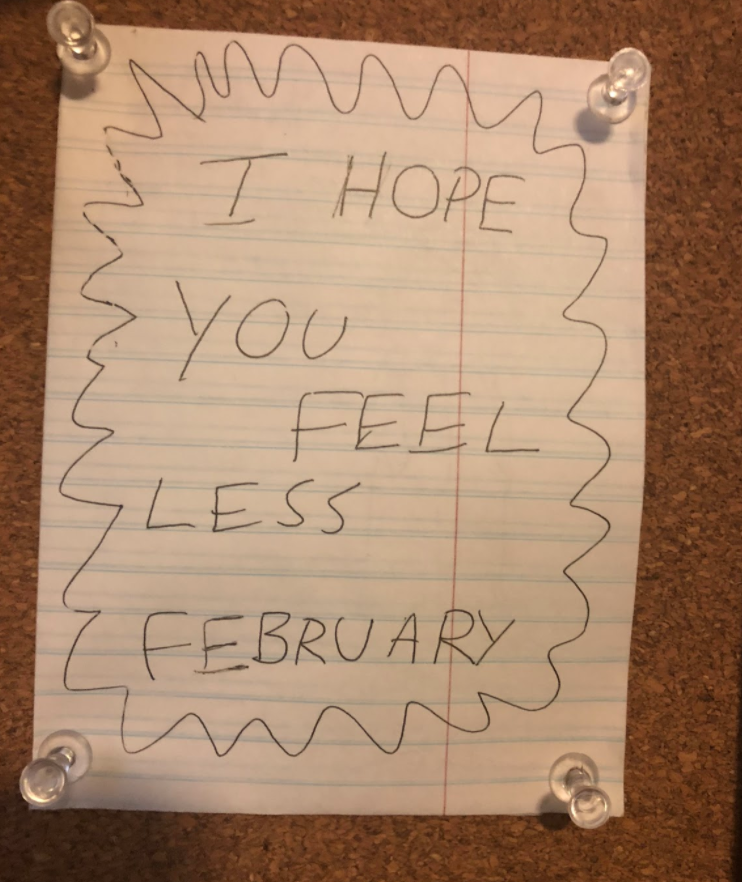 I HOPE
YOU
FEEL
LESS
FEBRUARY